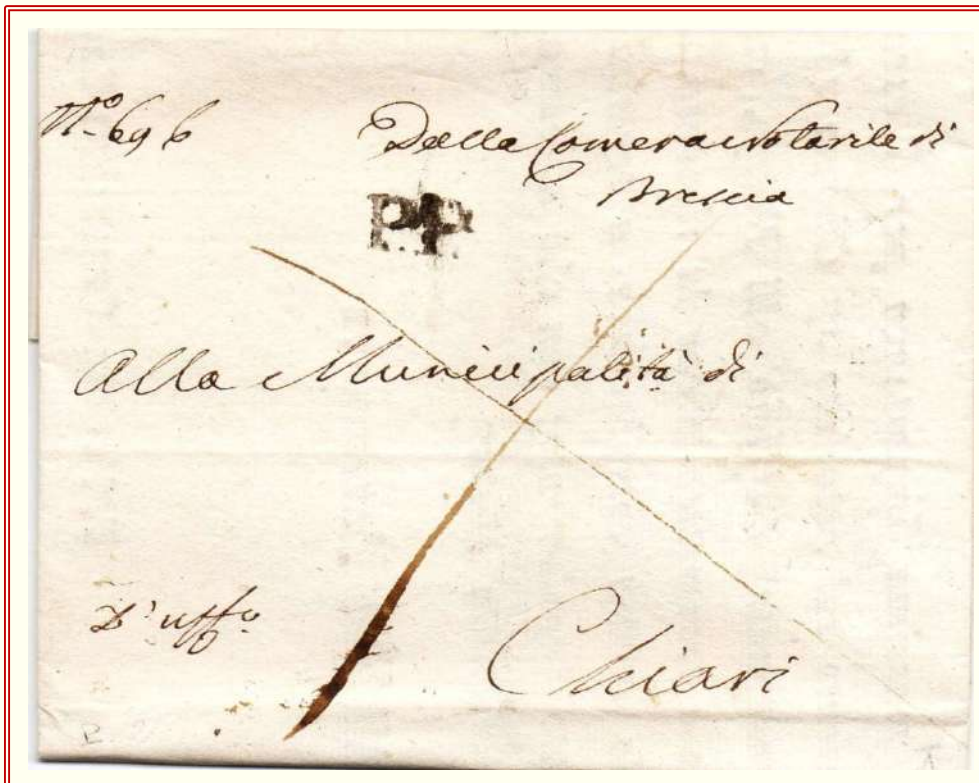 Nº 696
Dalla Camera Notarile di
Brescia
P.P.
Alla Municipalità di
D'uffº
Chiari